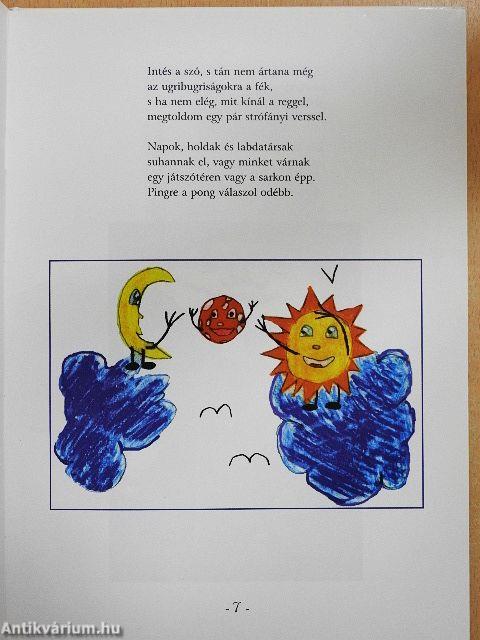 Intés a szó, s tán nem ártana még
az ugribugriságokra a fék,
s ha nem elég, mit kínál a reggel,
megtoldom egy pár strófányi verssel.
Napok, holdak és labdatársak
suhannak el, vagy minket várnak
egy játszótéren vagy a sarkon épp.
Pingre a pong válaszol odébb.
- 7 -
Antikvárium.hu